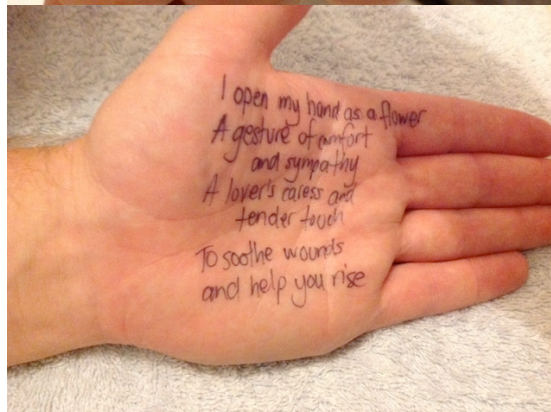 I open my hand as a flower
A gesture of comfort
and sympathy
A lover's caress and
tender touch
To soothe wounds
and help you rise